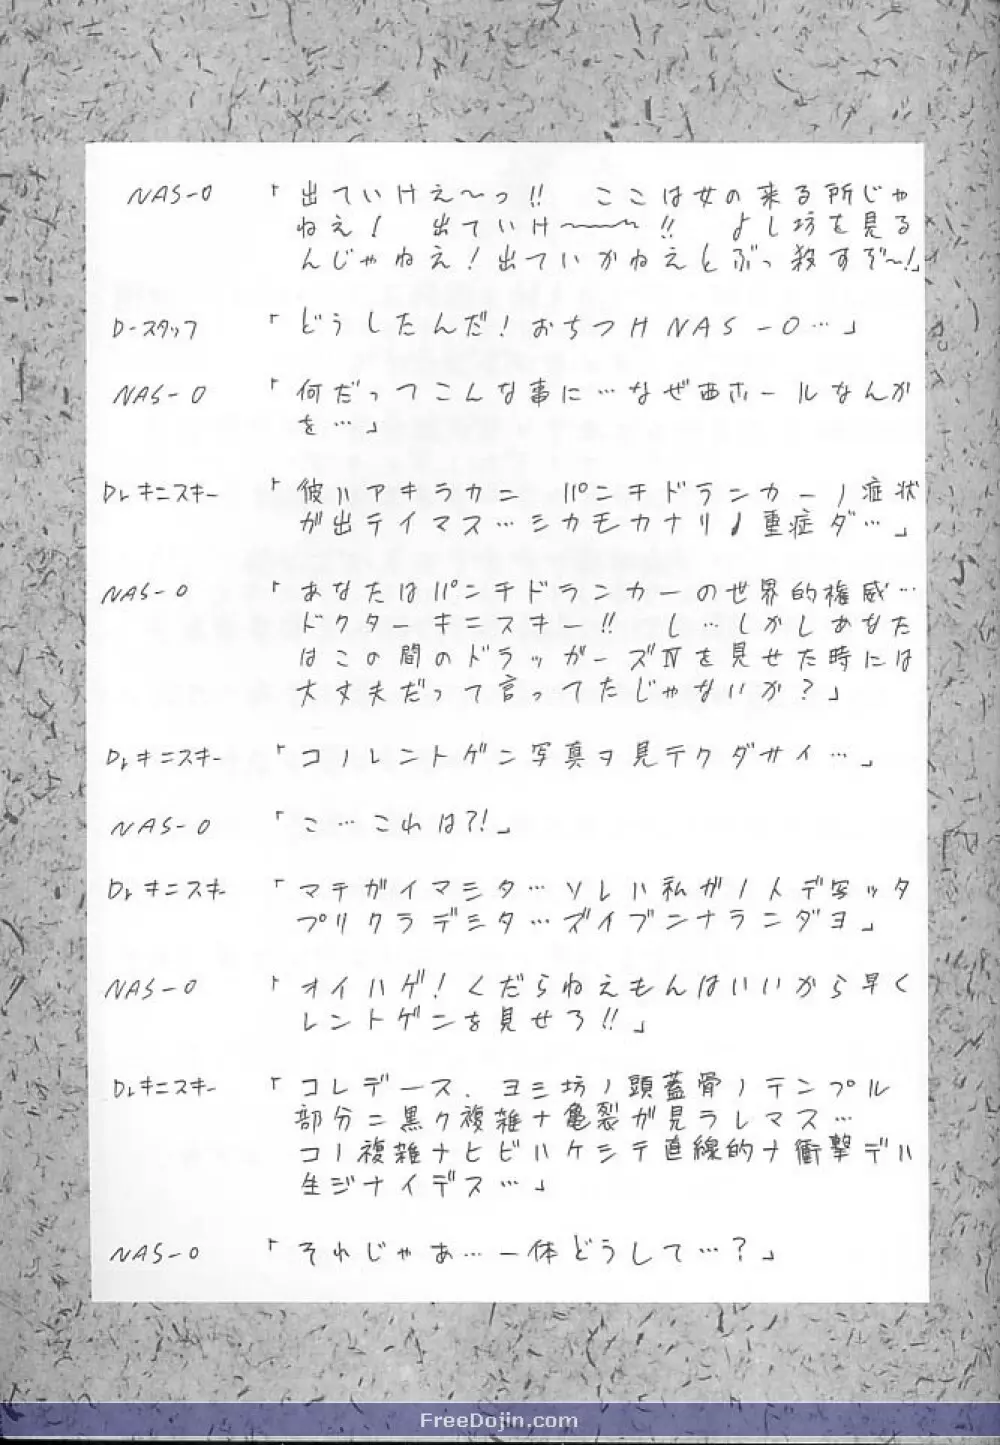 NAS-O 「出ていけえ～っ!! ここは女の来る所じゃ
ねえ! 出ていけ～～～!! よし坊を見る
んじゃねえ!出ていかねえとぶっ殺すぞ～!」
D-スタッフ 「どうしたんだ!おちつけNAS-O…」
NAS-O 「何だってこんな事に…なぜ西ホールなんか
を…」
Dr.キニスキー 「彼ハアキラカニ パンチドランカーノ症状
が出テイマス…シカモカナリノ重症ダ…」
NAS-O 「あなたはパンチドランカーの世界的権威…
ドクターキニスキー!! し…しかしあなた
はこの間のドラッガーズⅣを見せた時には
大丈夫だって言ってたじゃないか?」
Dr.キニスキー 「コノレントゲン写真ヲ見テクダサイ…」
NAS-O 「こ…これは?!」
Dr.キニスキー 「マチガイマシタ…ソレハ私ガノトデ写ッタ
プリクラデシタ…ズイブンナランダヨ」
NAS-O 「オイハゲ!くだらねえもんはいいから早く
レントゲンを見せろ!!」
Dr.キニスキー 「コレデース、ヨシ坊ノ頭蓋骨ノテンプル
部分ニ黒ク複雑ナ亀裂が見ラレマス…
コノ複雑ナヒビハケシテ直線的ナ衝撃デハ
生ジナイデス…」
NAS-O 「それじゃあ…一体どうして…?」
FreeDojin.com